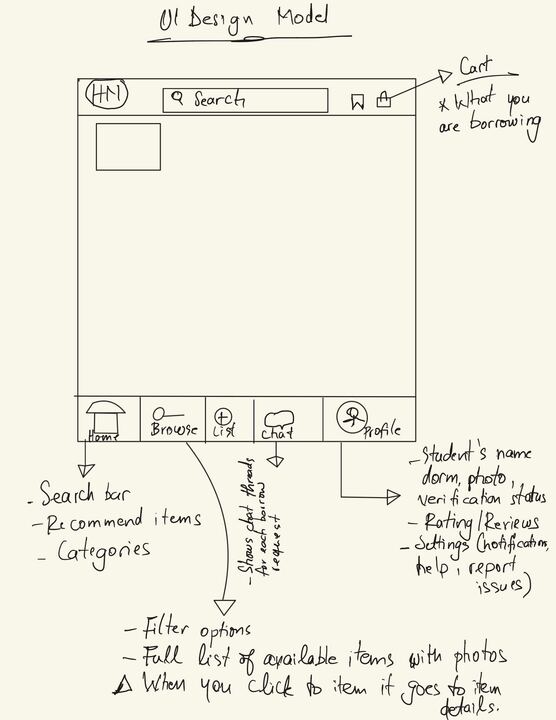 UI Design Model
HM
Search
Cart
* What you
are borrowing
Home
Browse
List
Chat
Profile
- Search bar
- Recommend items
- Categories
- Shows chat threads
for each borrow
request
- Student's name
dorm, photo,
verification status
- Rating/Reviews
- Settings (notification,
help, report
issues)
- Filter options
- Full list of available items with photos
When you click to item it goes to item
details.